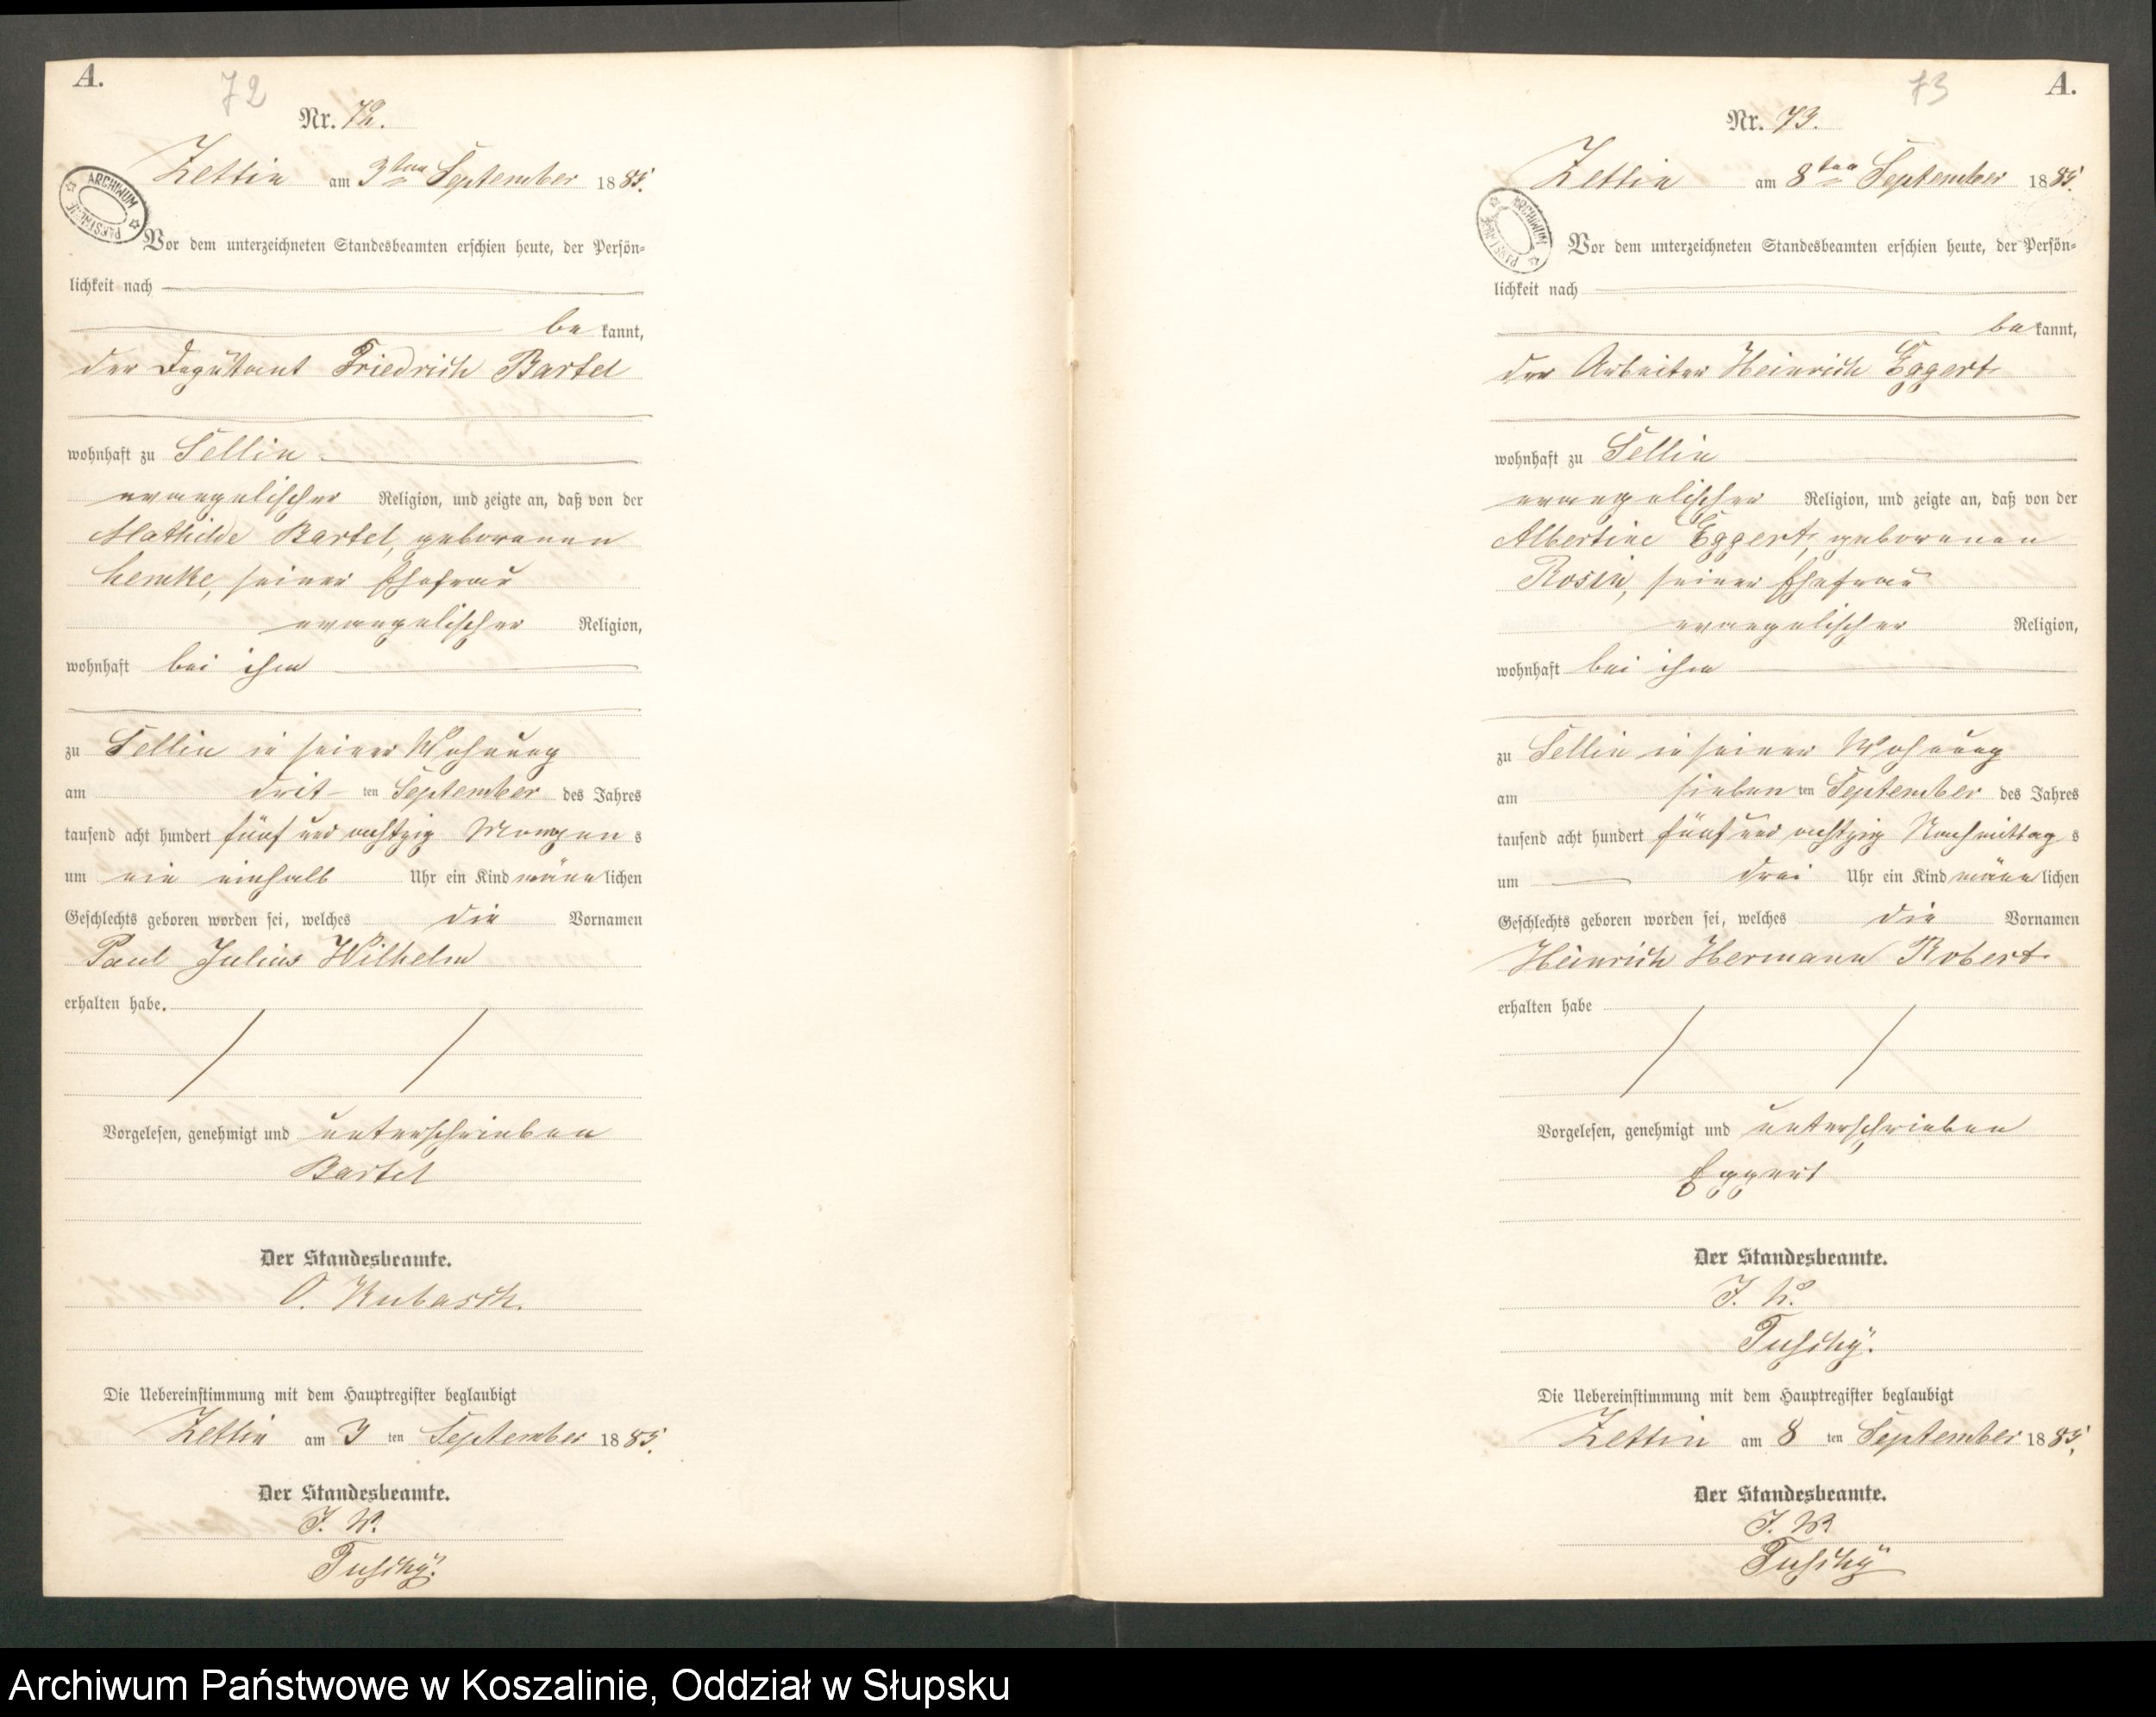 A.
72
Nr. 72.
Zettin am 3ten September 1885.
ARCHIWUM PAŃSTWOWE
Vor dem unterzeichneten Standesbeamten erschien heute, der Persön-
lichkeit nach
be kannt,
der Deputant Friedrich Bartel
wohnhaft zu Sellin
evangelischer Religion, und zeigte an, daß von der
Mathilde Bartel, geborenen
Lemke, seiner Ehefrau
evangelischer Religion,
wohnhaft bei ihm
zu Sellin in seiner Wohnung
am drit ten September des Jahres
tausend acht hundert fünf und achtzig Morgens
um ein einhalb Uhr ein Kind männlichen
Geschlechts geboren worden sei, welches die Vornamen
Paul Julius Wilhelm
erhalten habe.
Vorgelesen, genehmigt und unterschrieben
Bartel
Der Standesbeamte.
O. Kubasch.
Die Uebereinstimmung mit dem Hauptregister beglaubigt
Zettin am 3 ten September 1885.
Der Standesbeamte.
A.
73
Nr. 73.
Zettin am 8ten September 1885.
ARCHIWUM PAŃSTWOWE
Vor dem unterzeichneten Standesbeamten erschien heute, der Persön-
lichkeit nach
be kannt,
der Arbeiter Heinrich Eggert
wohnhaft zu Sellin
evangelischer Religion, und zeigte an, daß von der
Albertine Eggert, geborenen
Rosin, seiner Ehefrau
evangelischer Religion,
wohnhaft bei ihm
zu Sellin in seiner Wohnung
am sieben ten September des Jahres
tausend acht hundert fünf und achtzig Nachmittags
um drei Uhr ein Kind männlichen
Geschlechts geboren worden sei, welches die Vornamen
Heinrich Hermann Robert
erhalten habe
Vorgelesen, genehmigt und unterschrieben
Eggert
Der Standesbeamte.
Die Uebereinstimmung mit dem Hauptregister beglaubigt
Zettin am 8 ten September 1885.
Der Standesbeamte.
Archiwum Państwowe w Koszalinie, Oddział w Słupsku